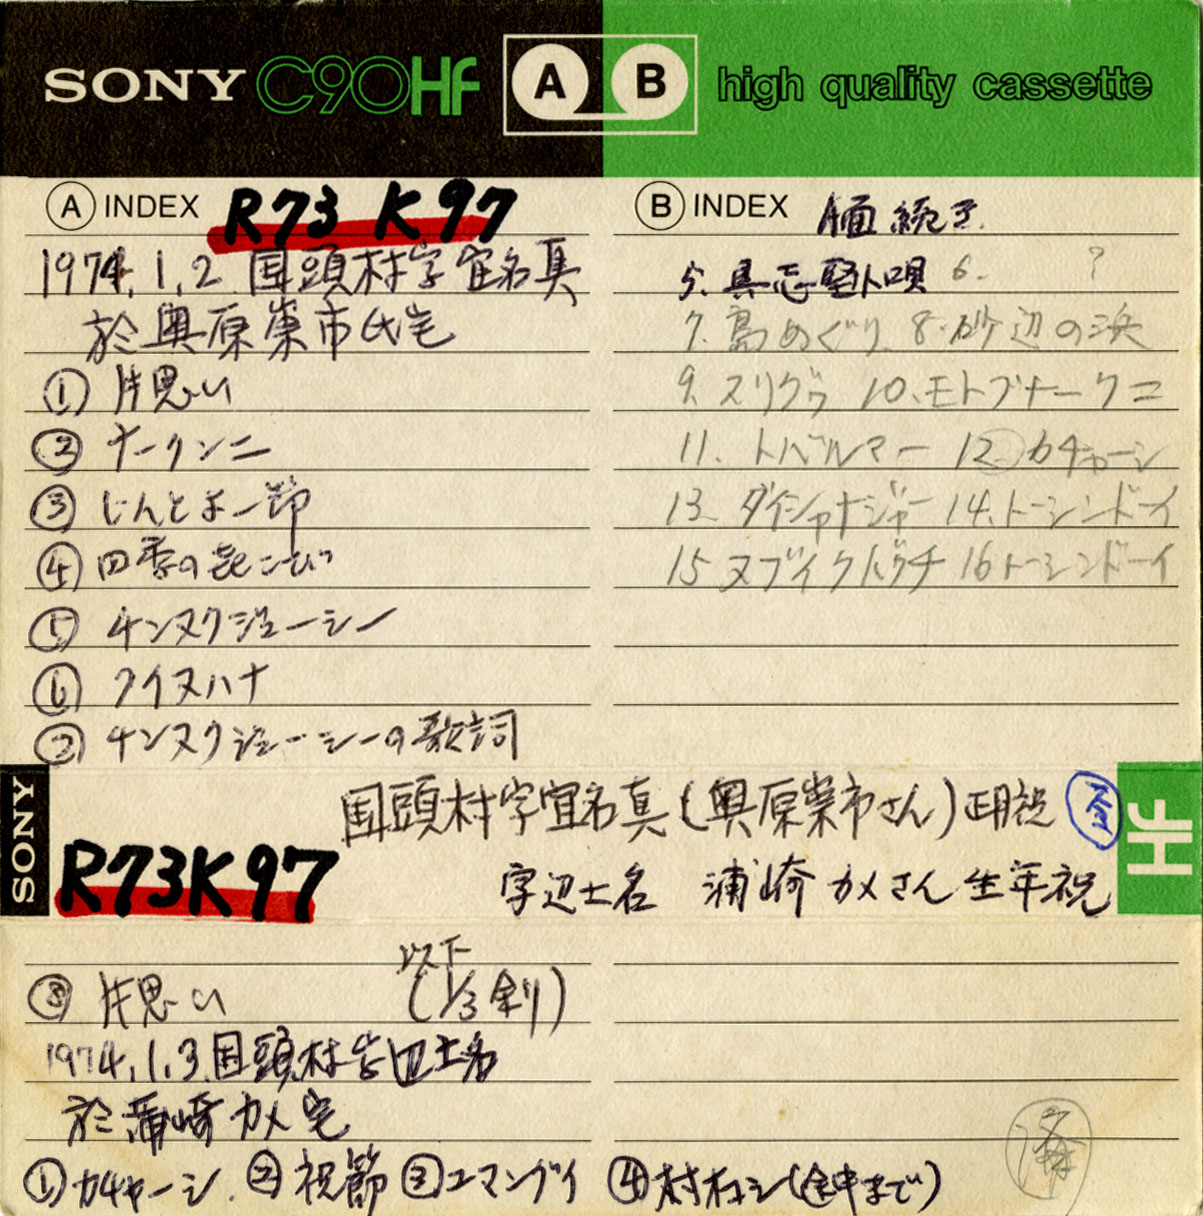 SONY C90HF A B high quality cassette
A INDEX R73 K97
1974.1.2 国頭村字宜名真
於奥原崇市氏宅
① 片思い
② ナークンニー
③ じんとよー節
④ 四季の喜こび
⑤ チンヌクジューシー
⑥ クイヌハナ
⑦ チンヌクジューシーの歌詞
B INDEX A面 続き.
5. 具志堅人唄 6. ?
7. 島めぐり 8. 砂辺の浜
9. スリグヮ 10. モトブナークニ
11. トバルマー 12 カチャーシ
13. ダイシャナジャー 14. トーシンドーイ
15 ヌブイクバウチ 16 トーシンドーイ
SONY
R73K97
国頭村字宜名真(奥原崇市さん)正月祝
字辺土名 浦崎カメさん生年祝
HF
⑧ 片思い 以下(1/3余り)
1974.1.3.国頭村字辺土名
於浦崎カメ宅
① カチャーシ. ② 祝節 ③ エマングイ ④ 村村コシ(途中まで)
済